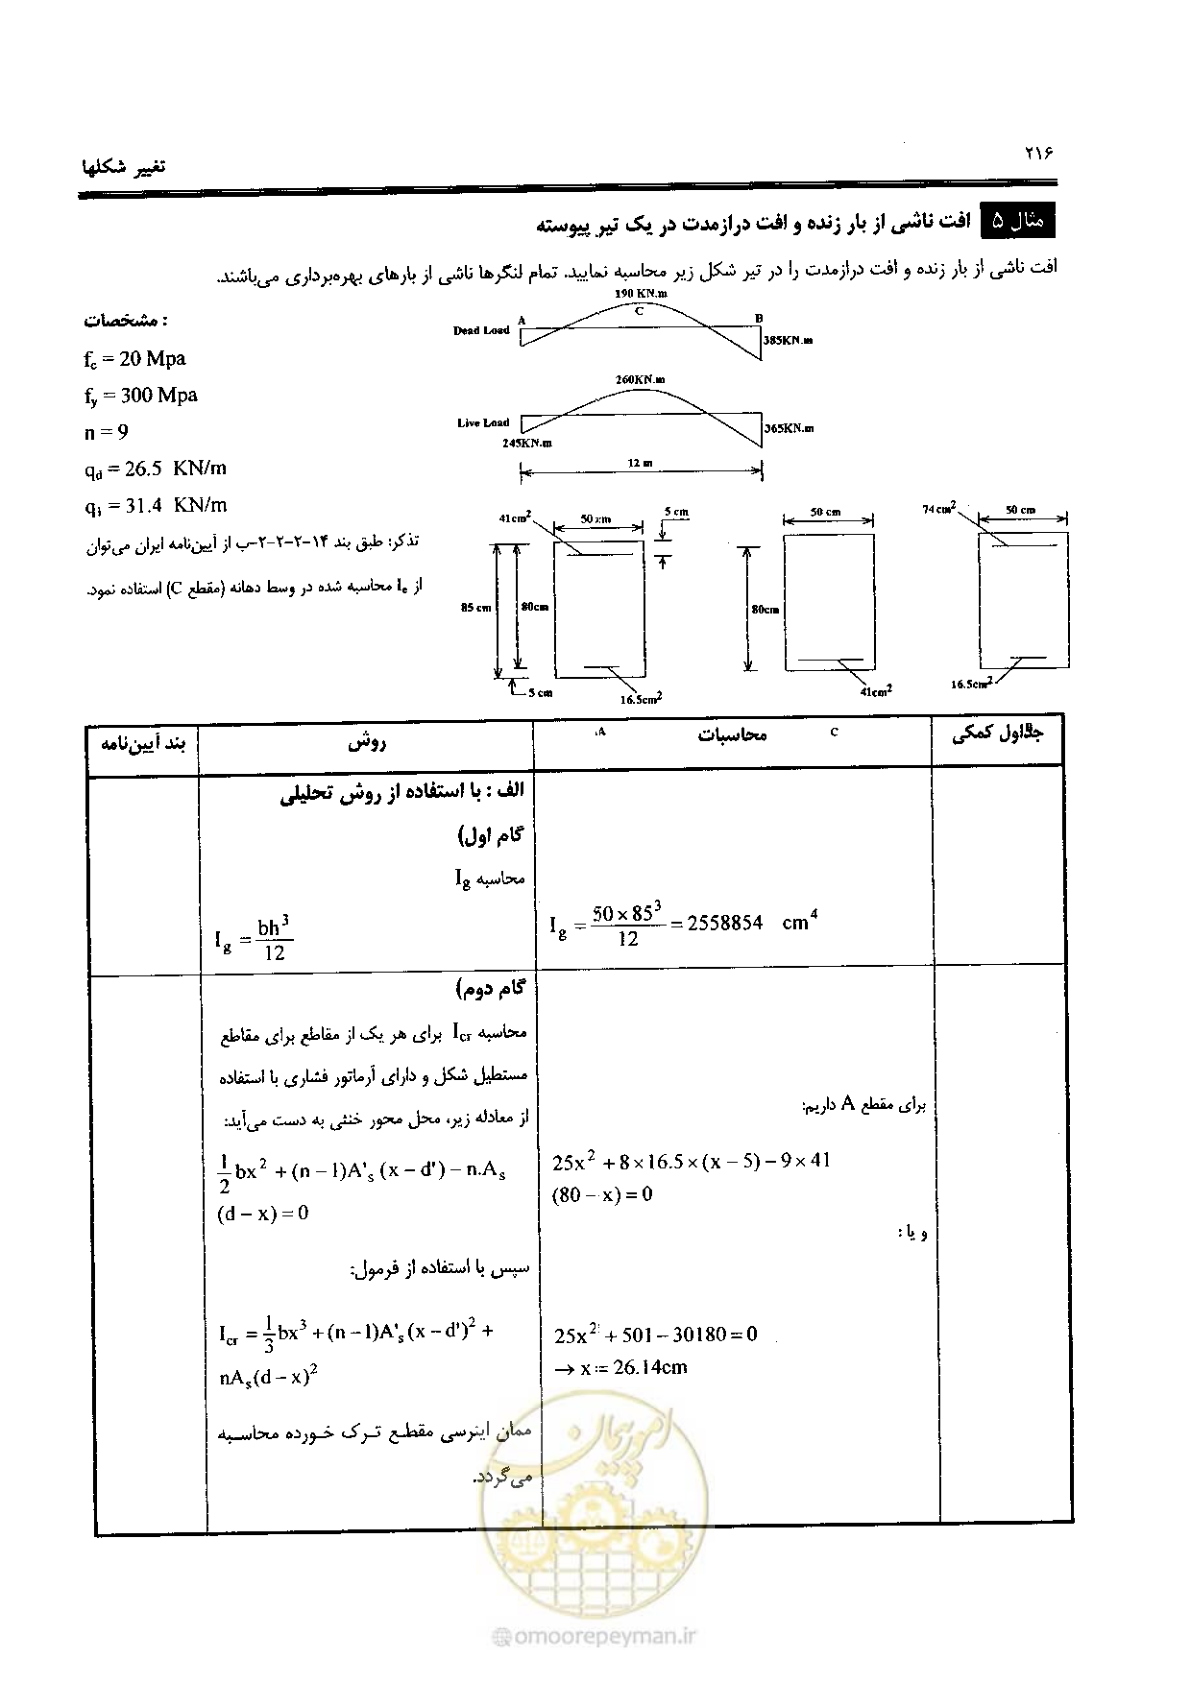 ۲۱۶
تغییر شکلها
مثال ۵ افت ناشی از بار زنده و افت درازمدت در یک تیر پیوسته
افت ناشی از بار زنده و افت درازمدت را در تیر شکل زیر محاسبه نمایید. تمام لنگرها ناشی از بارهای بهره‌برداری می‌باشند.
مشخصات :
f_c = 20 Mpa
f_y = 300 Mpa
n = 9
q_d = 26.5 KN/m
q_l = 31.4 KN/m
تذکر: طبق بند ۱۴-۲-۲-۲-ب از آیین‌نامه ایران می‌توان
از I_e محاسبه شده در وسط دهانه (مقطع C) استفاده نمود.
190 KN.m
A C B
Dead Load
385KN.m
260KN.m
Live Load
365KN.m
245KN.m
12 m
41cm²
50 cm
5 cm
85 cm
80cm
5 cm
16.5cm²
50 cm
80cm
41cm²
74cm²
50 cm
16.5cm²
جداول کمکی
C محاسبات A.
روش
بند آیین‌نامه
الف : با استفاده از روش تحلیلی
گام اول)
محاسبه I_g
I_g = bh³/12
I_g = 50×85³/12 = 2558854 cm⁴
گام دوم)
محاسبه I_cr برای هر یک از مقاطع برای مقاطع
مستطیل شکل و دارای آرماتور فشاری با استفاده
از معادله زیر، محل محور خنثی به دست می‌آید:
1/2 bx² + (n – 1)A'_s (x – d') – n.A_s
(d – x) = 0
سپس با استفاده از فرمول:
I_cr = 1/3 bx³ + (n – 1)A'_s (x – d')² +
nA_s(d – x)²
ممان اینرسی مقطع ترک خورده محاسبه
می‌گردد.
برای مقطع A داریم:
25x² + 8×16.5×(x – 5) – 9×41
(80 – x) = 0
و یا :
25x² + 501 – 30180 = 0
→ x = 26.14cm
امور پیمان
@omoorepeyman.ir